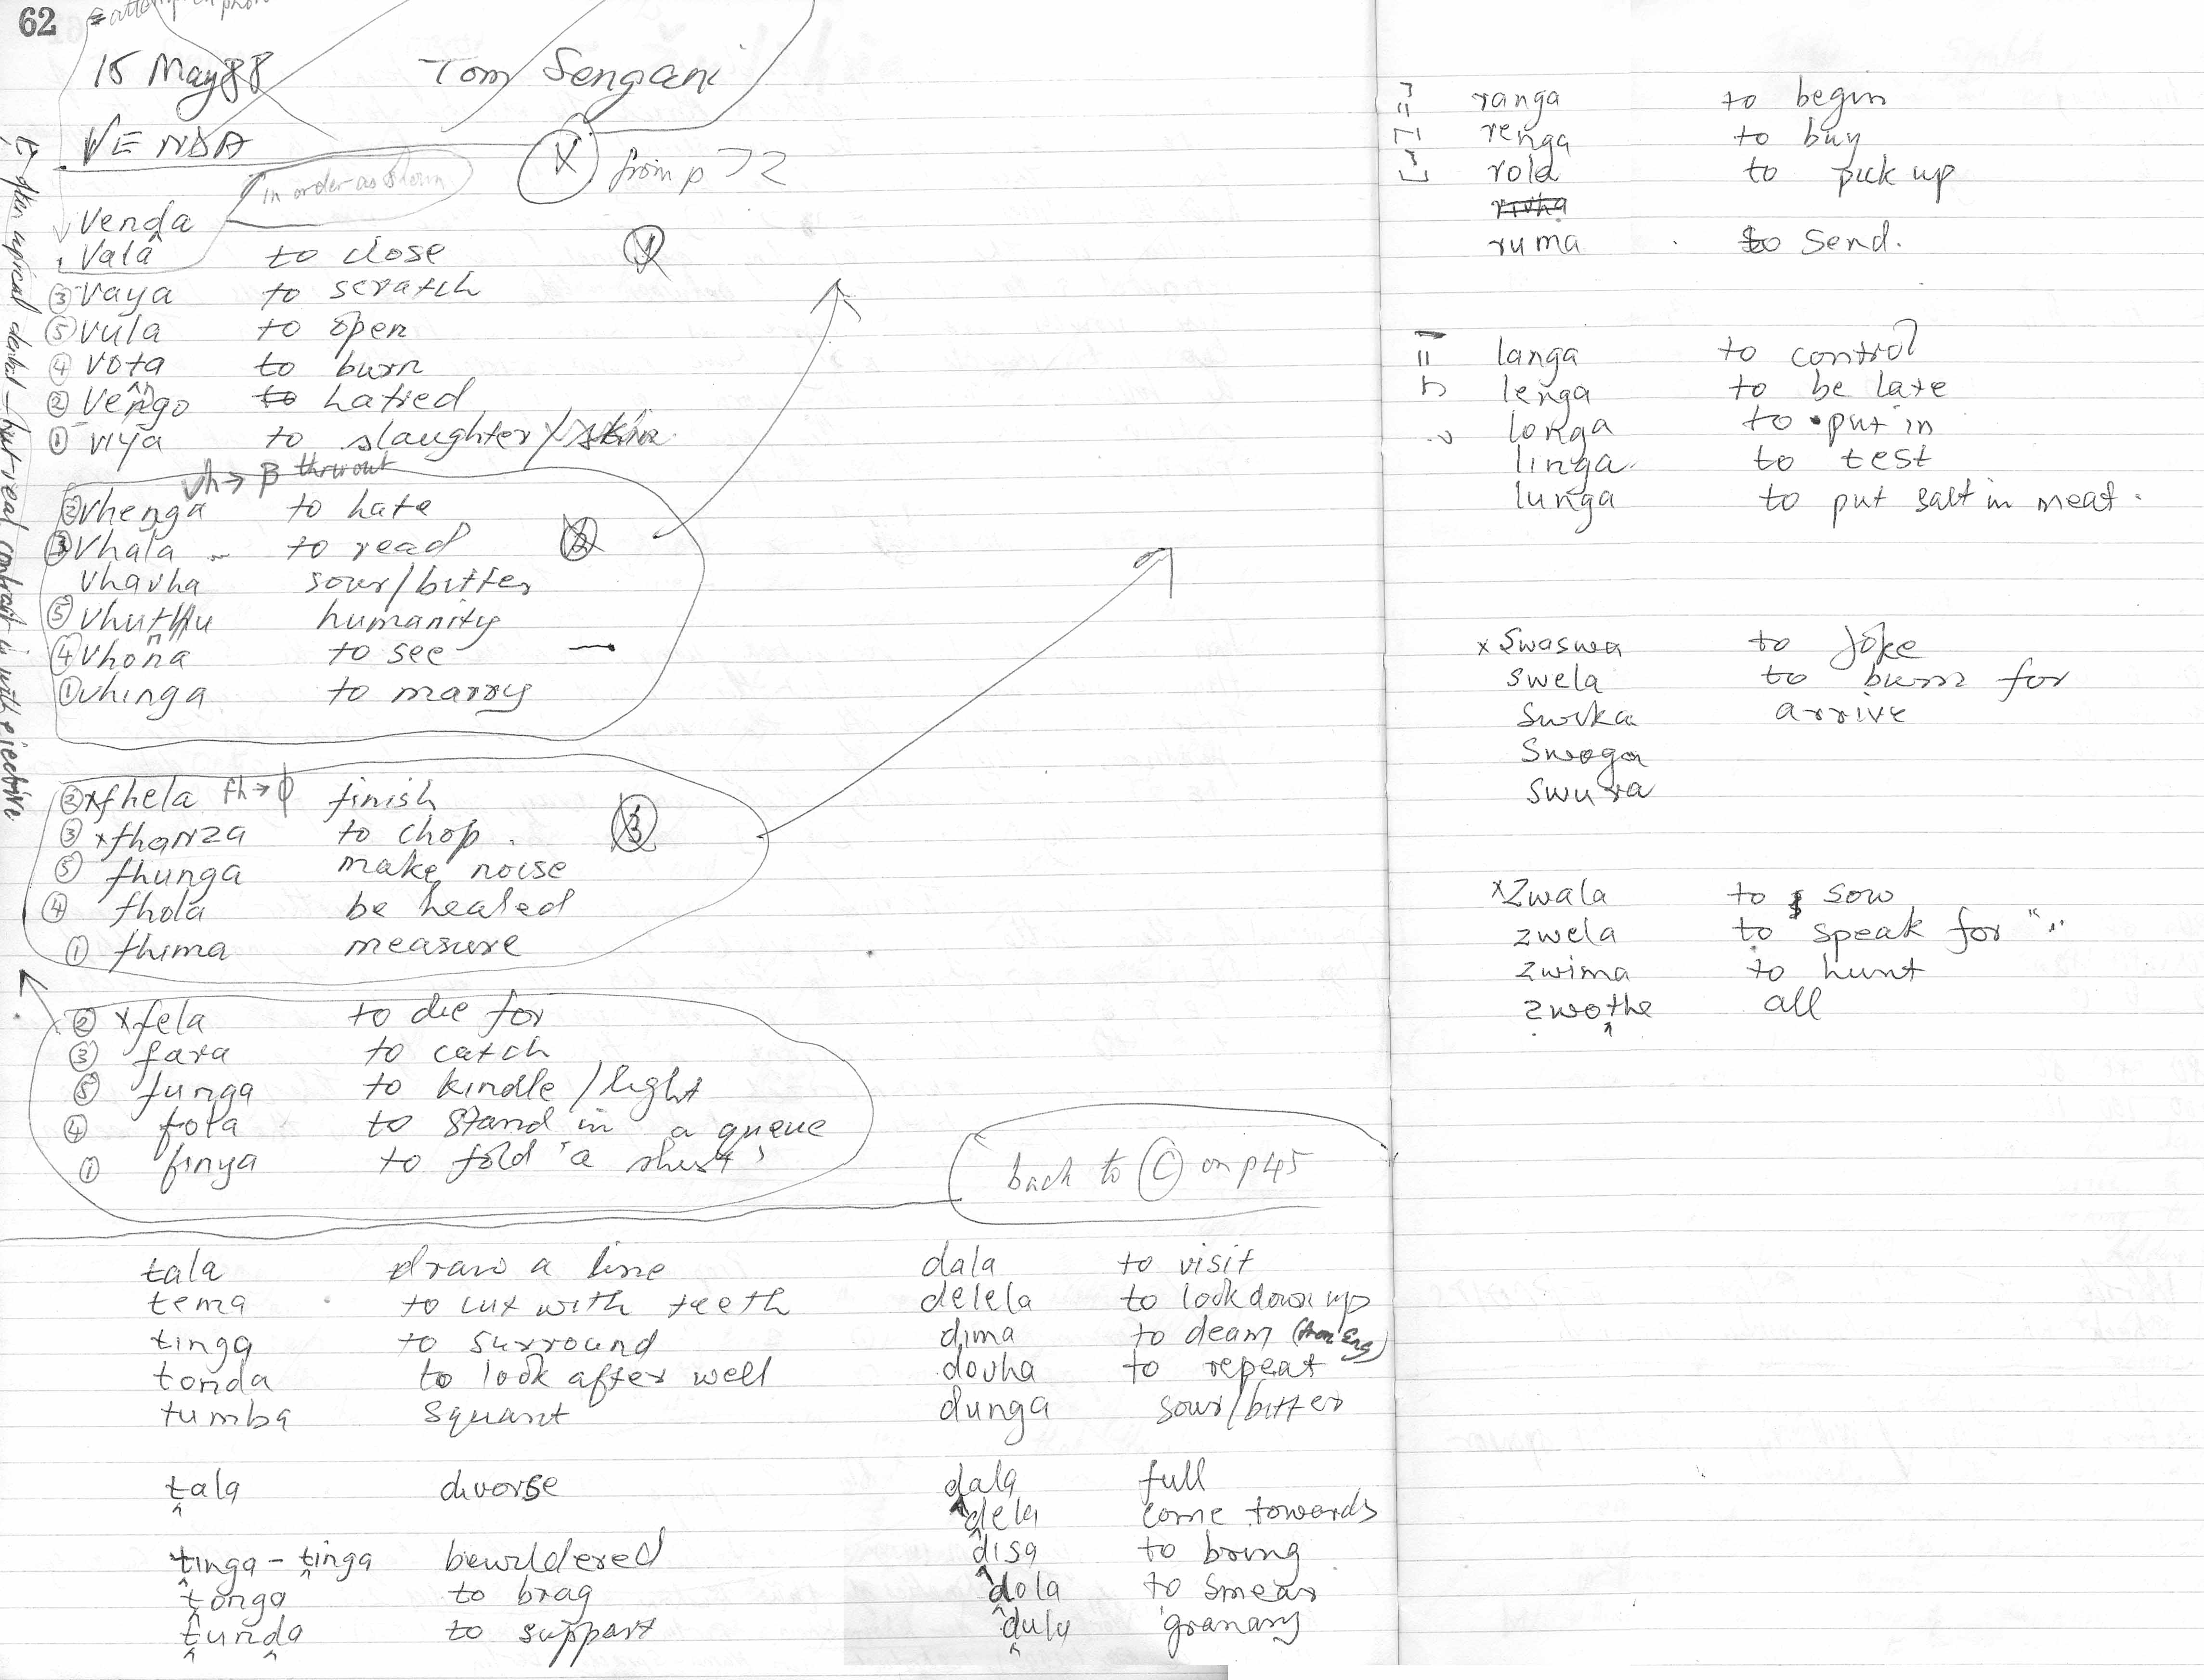 62
15 May 88 Tom Sengani
VENDA
in order as shown
X from p 72
Venda
Vala to close
③ Vaya to scratch
⑤ Vula to open
④ Vota to burn
② Vengo to hatred
① viya to slaughter / skin
vh → β thruout
② vhenga to hate
③ Vhala to read
vhavha sour/bitter
⑤ vhuthu humanity
④ vhona to see
① vhinga to marry
② x fhela fh → ɸ finish
③ x fhanza to chop.
⑤ fhunga make noise
④ fhola be healed
① fhima measure
② x fela to die for
③ fara to catch
⑤ funga to kindle / light
④ fola to stand in a queue
① finya to fold 'a shirt'
back to Ⓒ on p45
tala draw a line
tema to cut with teeth
tinga to surround
tonda to look after well
tumba squant
ṱala divorse
ṱinga - ṱinga bewildered
ṱonga to brag
ṱunḓa to support
dala to visit
delela to look down up
dima to deam (from Eng)
dovha to repeat
dunga sour/bitter
ḓala full
ḓela come towards
ḓisa to bring
ḓola to smear
ḓulu granary
ranga to begin
renga to buy
rola to pick up
ruma to send.
langa to control
lenga to be late
longa to put in
linga to test
lunga to put salt in meat.
x Swaswa to joke
swela to burn for
Swika arrive
Swoga
Swura
x Zwala to sow
zwela to speak for "."
zwima to hunt
zwoṱhe all